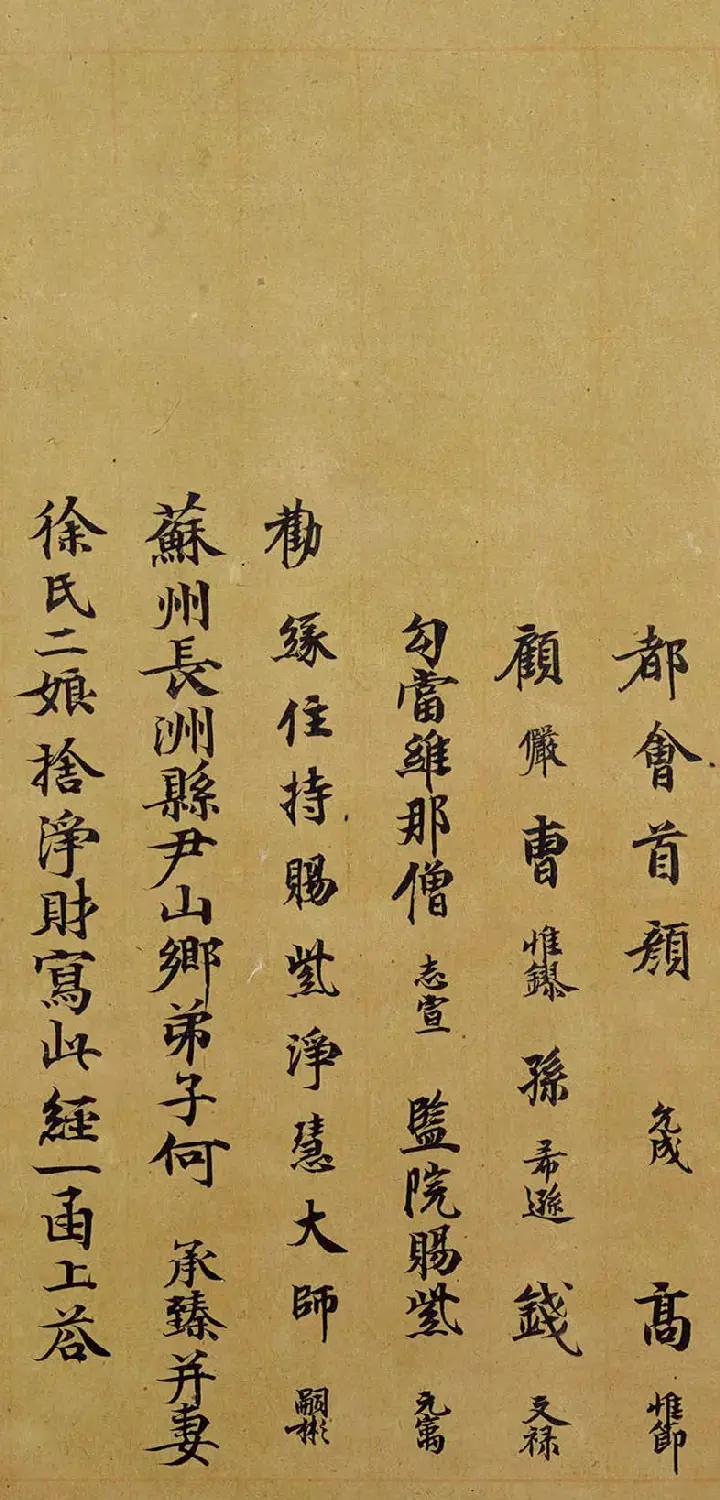 都會首顏 允成 高 惟節
顧 儼 曹 惟鏐 孫 希遜 錢 文祿
勾當維那僧 志宣 監院賜紫 元萬
勸緣住持賜紫淨慧大師 嗣彬
蘇州長洲縣尹山鄉弟子何 承臻并妻
徐氏二娘捨淨財寫此經一函上荅